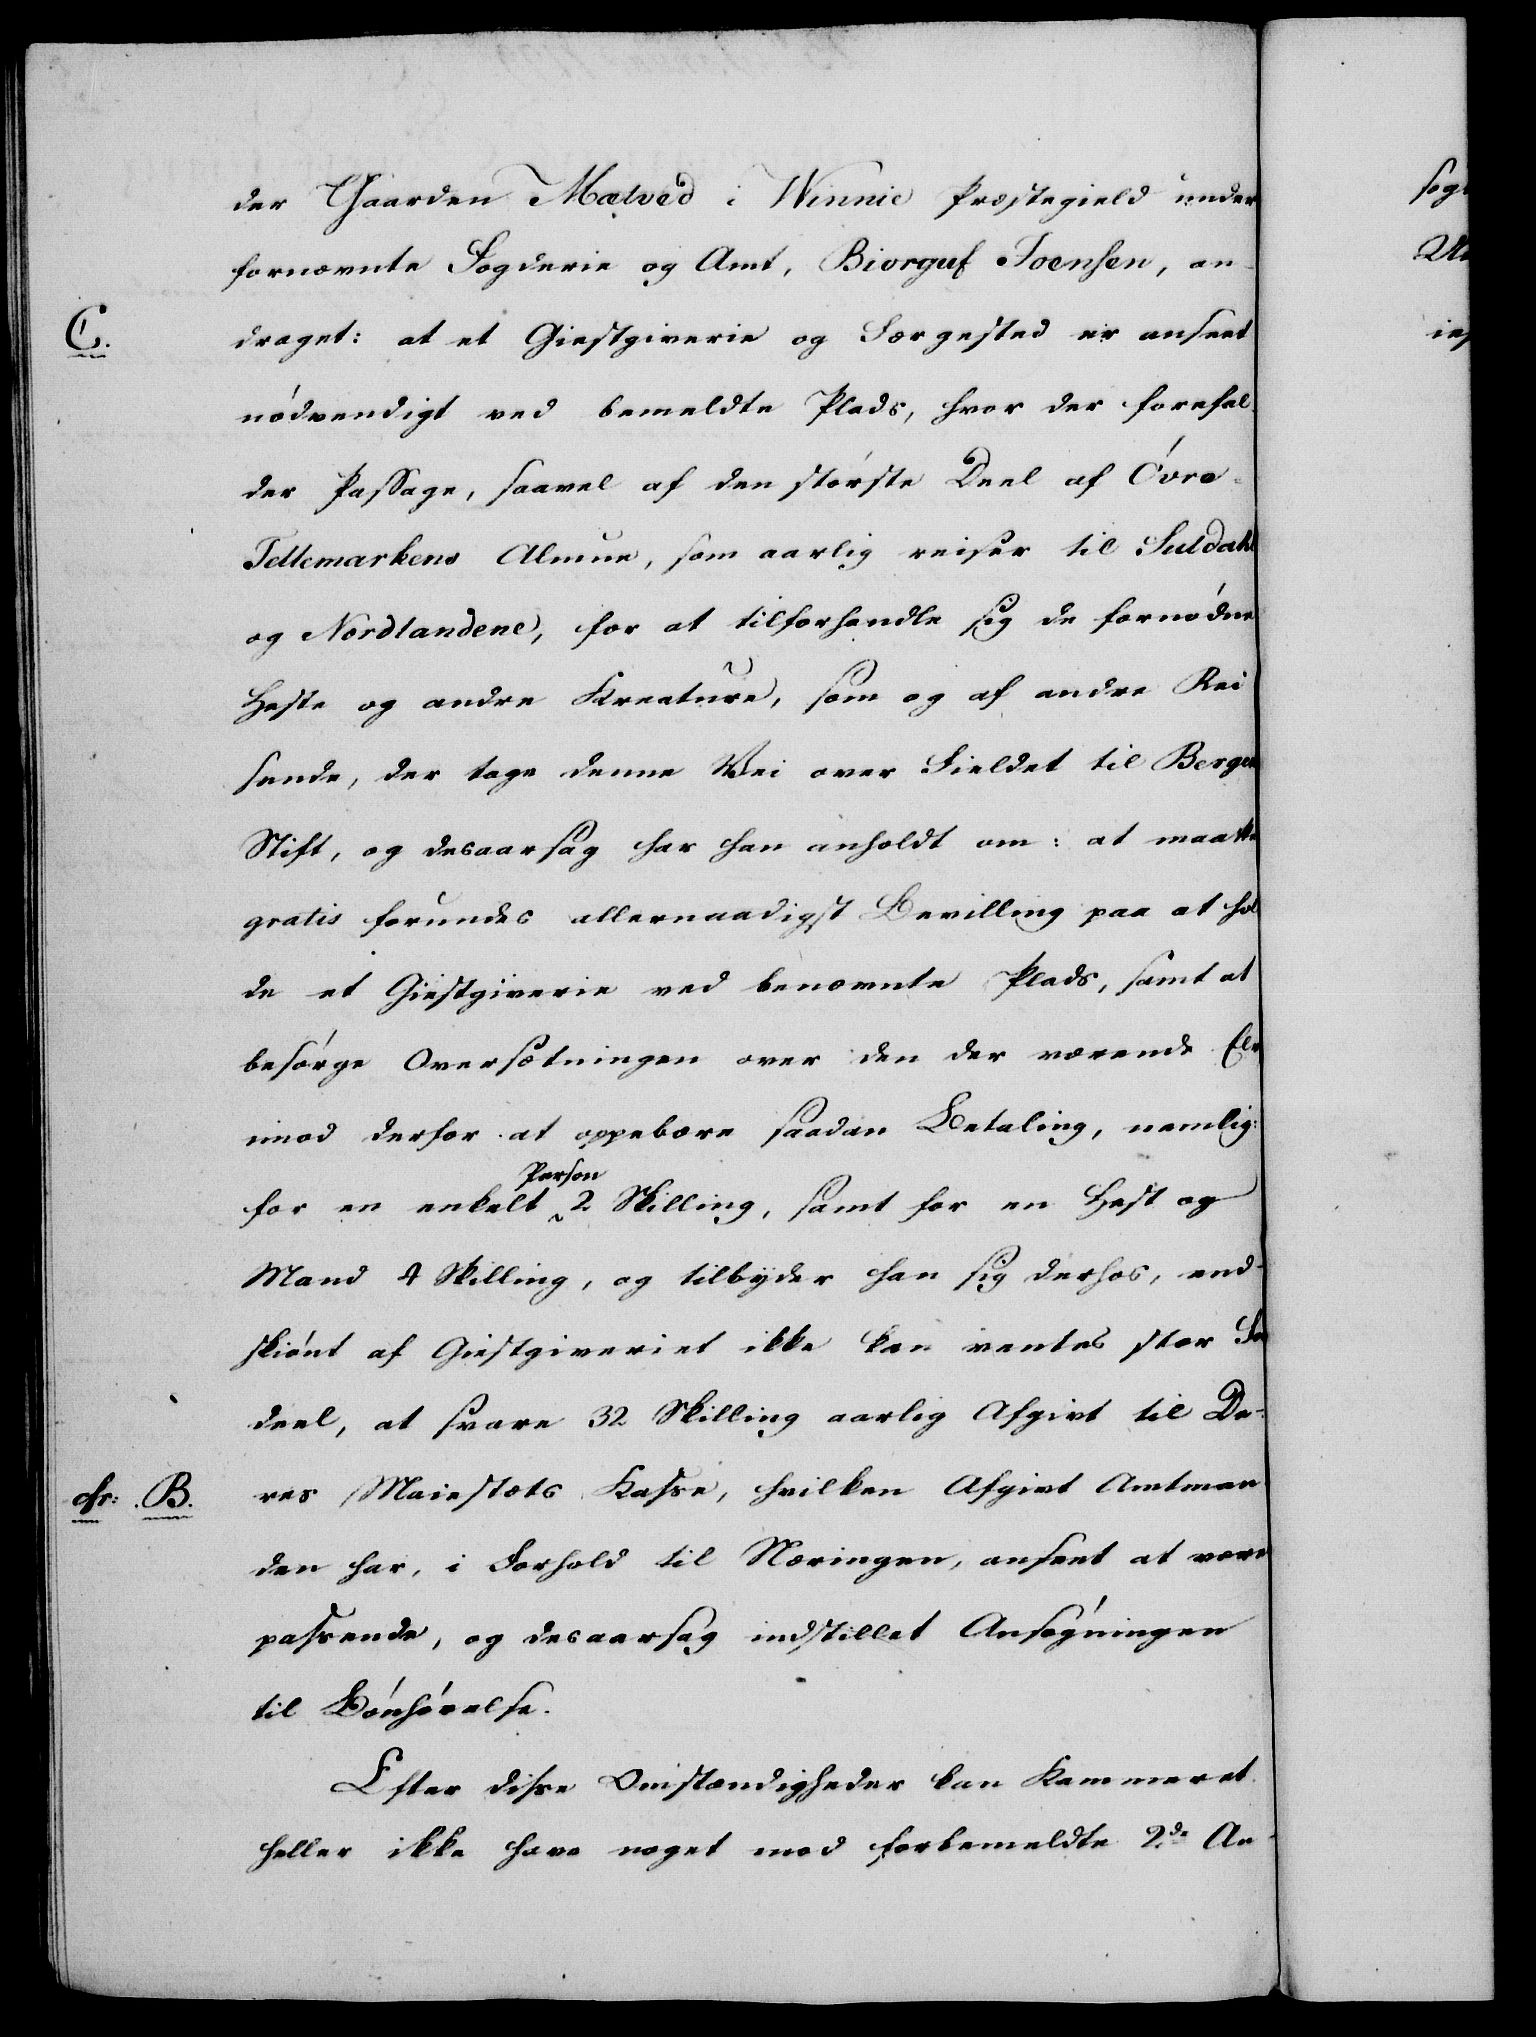 der Gaarden Mætved i Winnie Præstegield under
fornævnte Fogderie og Amt, Biorguf Joensen, an-
C. draget: at et Giestgiverie og Færgested er anseet
nödvendigt ved bemeldte Plads, hvor der forefal-
der Passage, saavel af den störste Deel af Övre-
Tellemarkens Almue, som aarlig reiser til Suldahl
og Nordlandene, for at tilforhandle sig de fornödne
Heste og andre Kreature, som og af andre Rei
sende, der tage denne Wei over Fieldet til Bergen
Stift, og desaarsag har han anholdt om: at maatte
gratis forundes allernaadigst Bevilling paa at hol
de et Giestgiverie ved benævnte Plads, samt at
besörge Oversætningen over den der værende Elv
imod derfor at oppebære saadan Betaling, nemlig:
Person
for en enkelt 2 Skilling, samt for en Hest og
Mand 4 Skilling, og tilbyder han sig derhos, end-
skiönt af Giestgiveriet ikke kan ventes stor For
deel, at svare 32 Skilling aarlig Afgivt til De-
cfr: B. res Maiestæts Kasse, hvilken Afgivt Amtman
den har, i Forhold til Næringen, anseet at være
passende, og desaarsag indstillet Ansøgningen
til Bönhörelse.
Efter disse Omstændigheder kan Kammeret
heller ikke have noget mod forbemeldte 2de An-